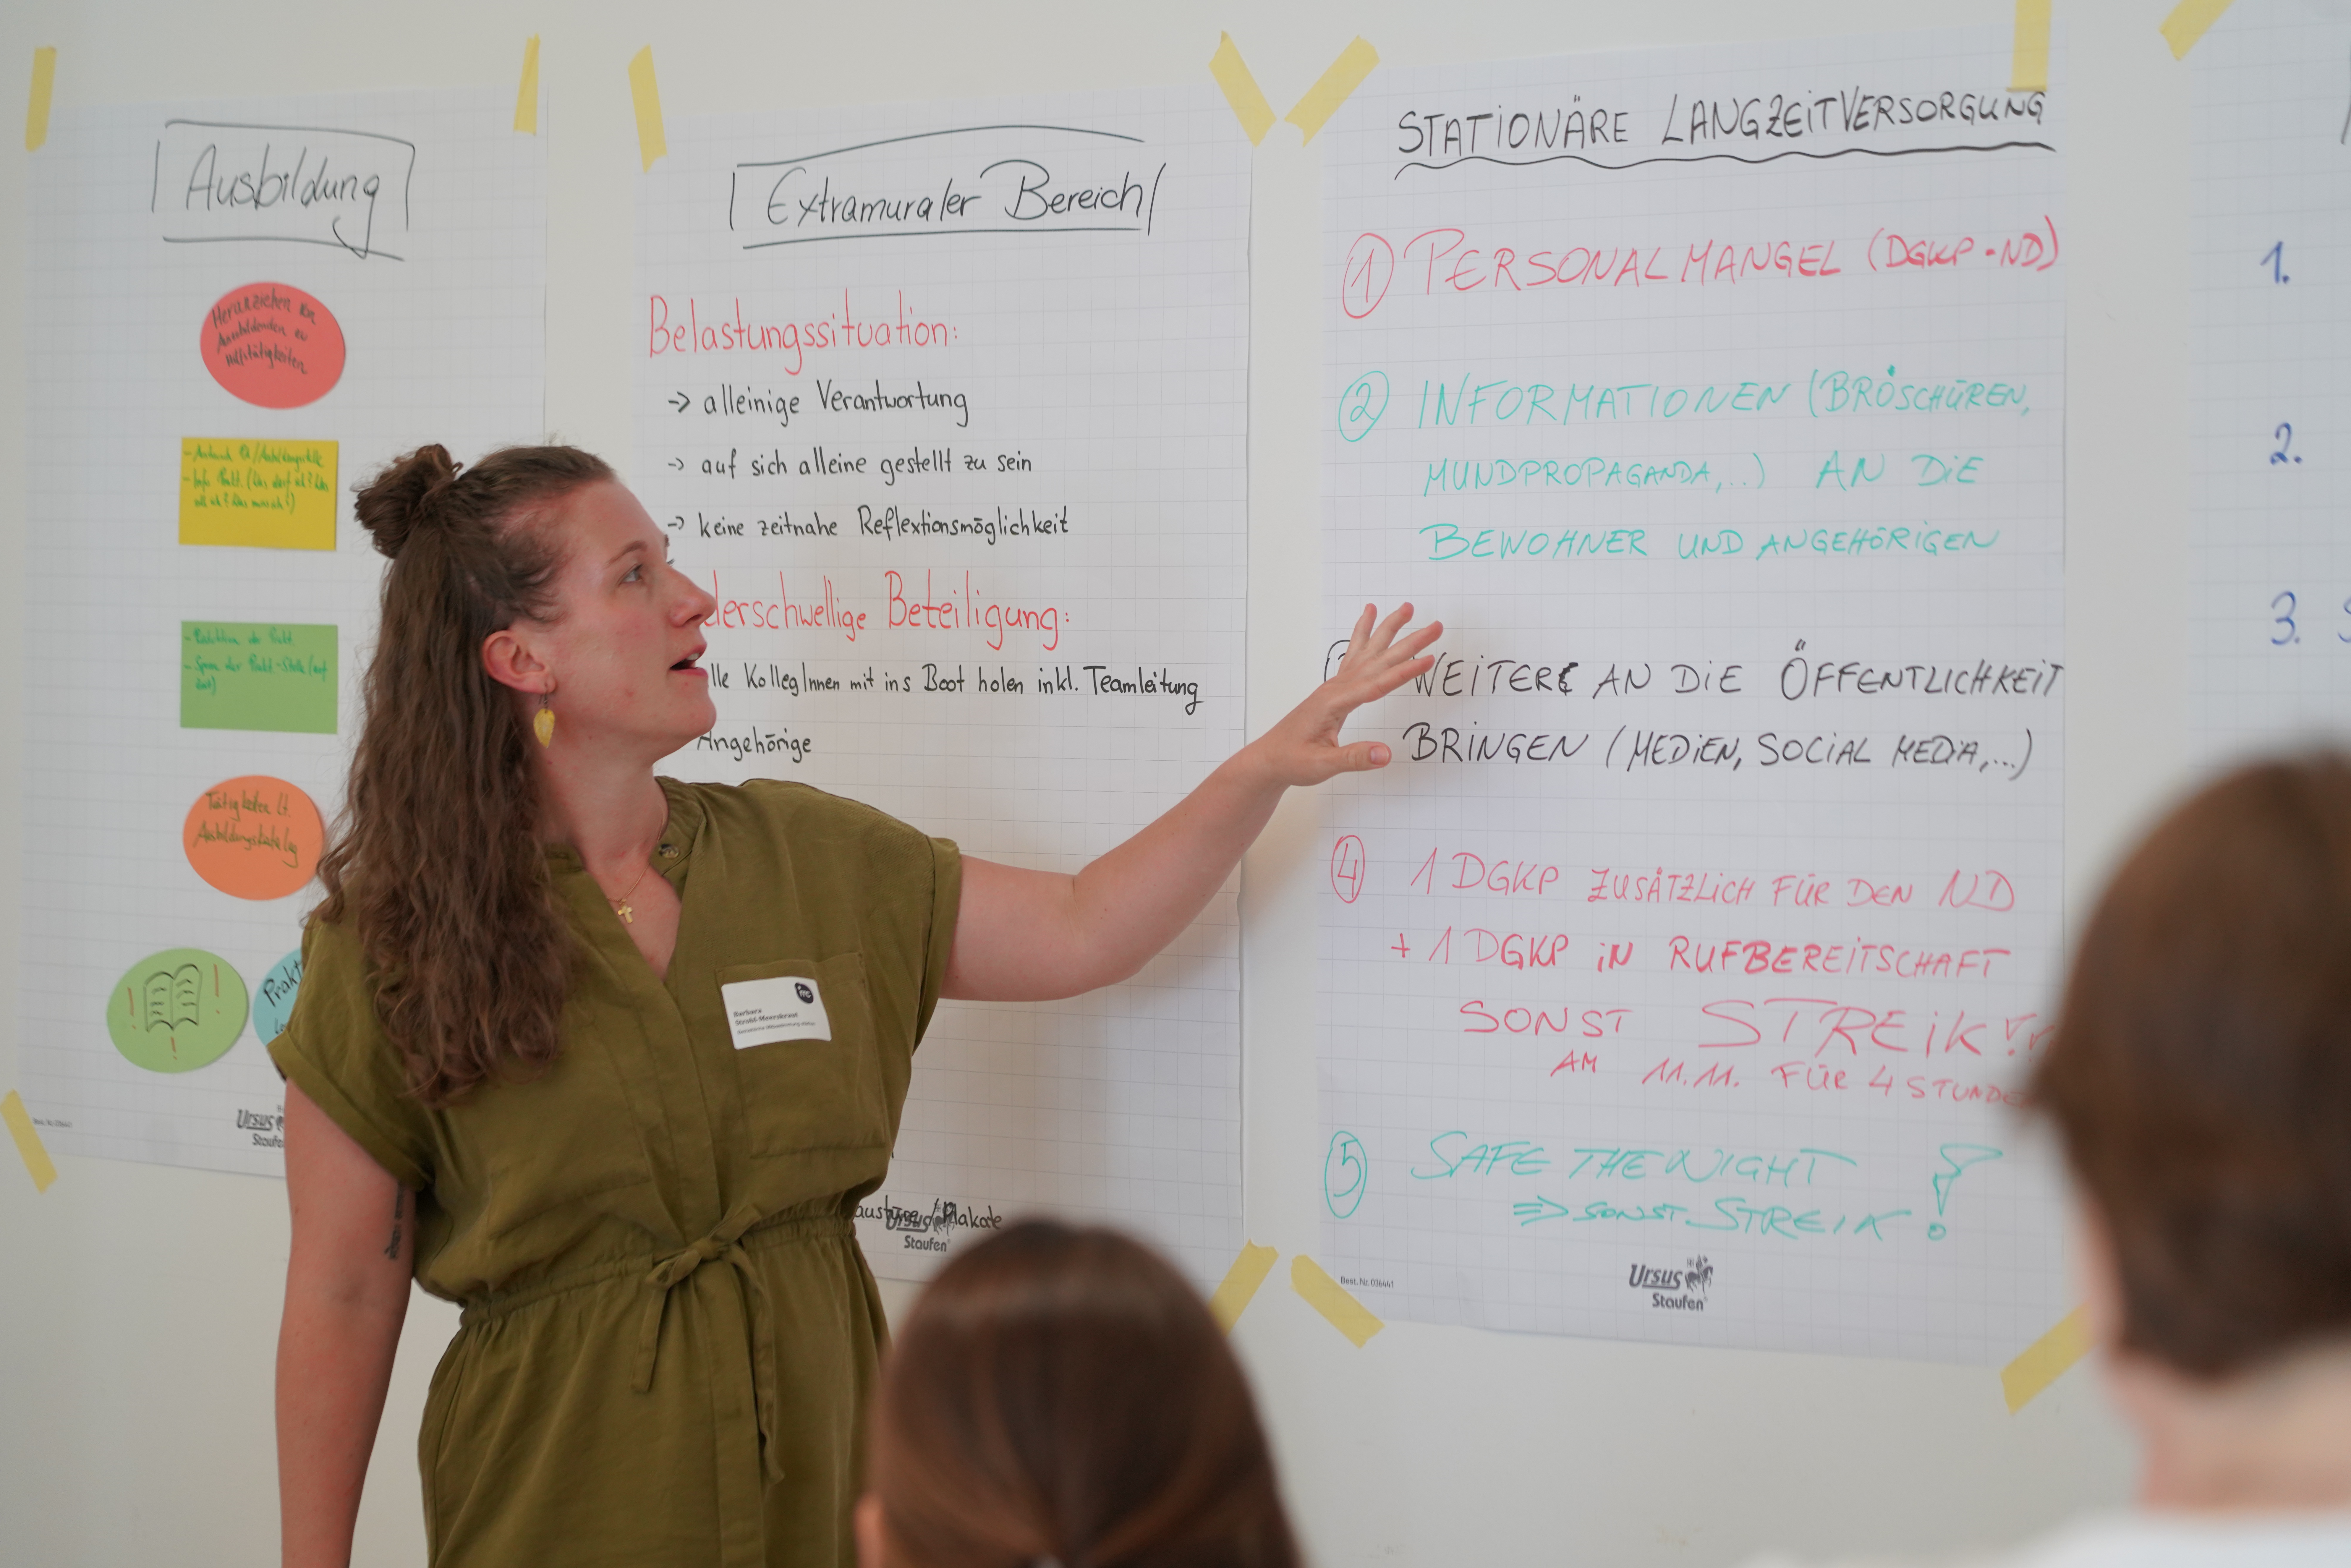 Ausbildung
Heranziehen von
Auszubildenden zu
Hilfstätigkeiten
Tätigkeiten lt.
Ausbildungskatalog
! !
!
Prakt
Ursus
Staufen
Extramuraler Bereich
Belastungssituation:
-> alleinige Verantwortung
-> auf sich alleine gestellt zu sein
-> keine zeitnahe Reflextionsmöglichkeit
derschwellige Beteiligung:
lle KollegInnen mit ins Boot holen inkl. Teamleitung
Angehörige
Plakate
Ursus
Staufen
Barbara
STATIONÄRE LANGZEITVERSORGUNG
1 PERSONALMANGEL (DGKP-ND)
2 INFORMATIONEN (BROSCHÜREN,
MUNDPROPAGANDA,..) AN DIE
BEWOHNER UND ANGEHÖRIGEN
WEITERE AN DIE ÖFFENTLICHKEIT
BRINGEN (MEDIEN, SOCIAL MEDIA,...)
4 1 DGKP ZUSÄTZLICH FÜR DEN ND
+ 1 DGKP IN RUFBEREITSCHAFT
SONST STREIK
AM 11.11. FÜR 4 STUNDE
5 SAFE THE NIGHT !
=> SONST STREIK
Best. Nr. 036441
Ursus
Staufen
1.
2.
3.